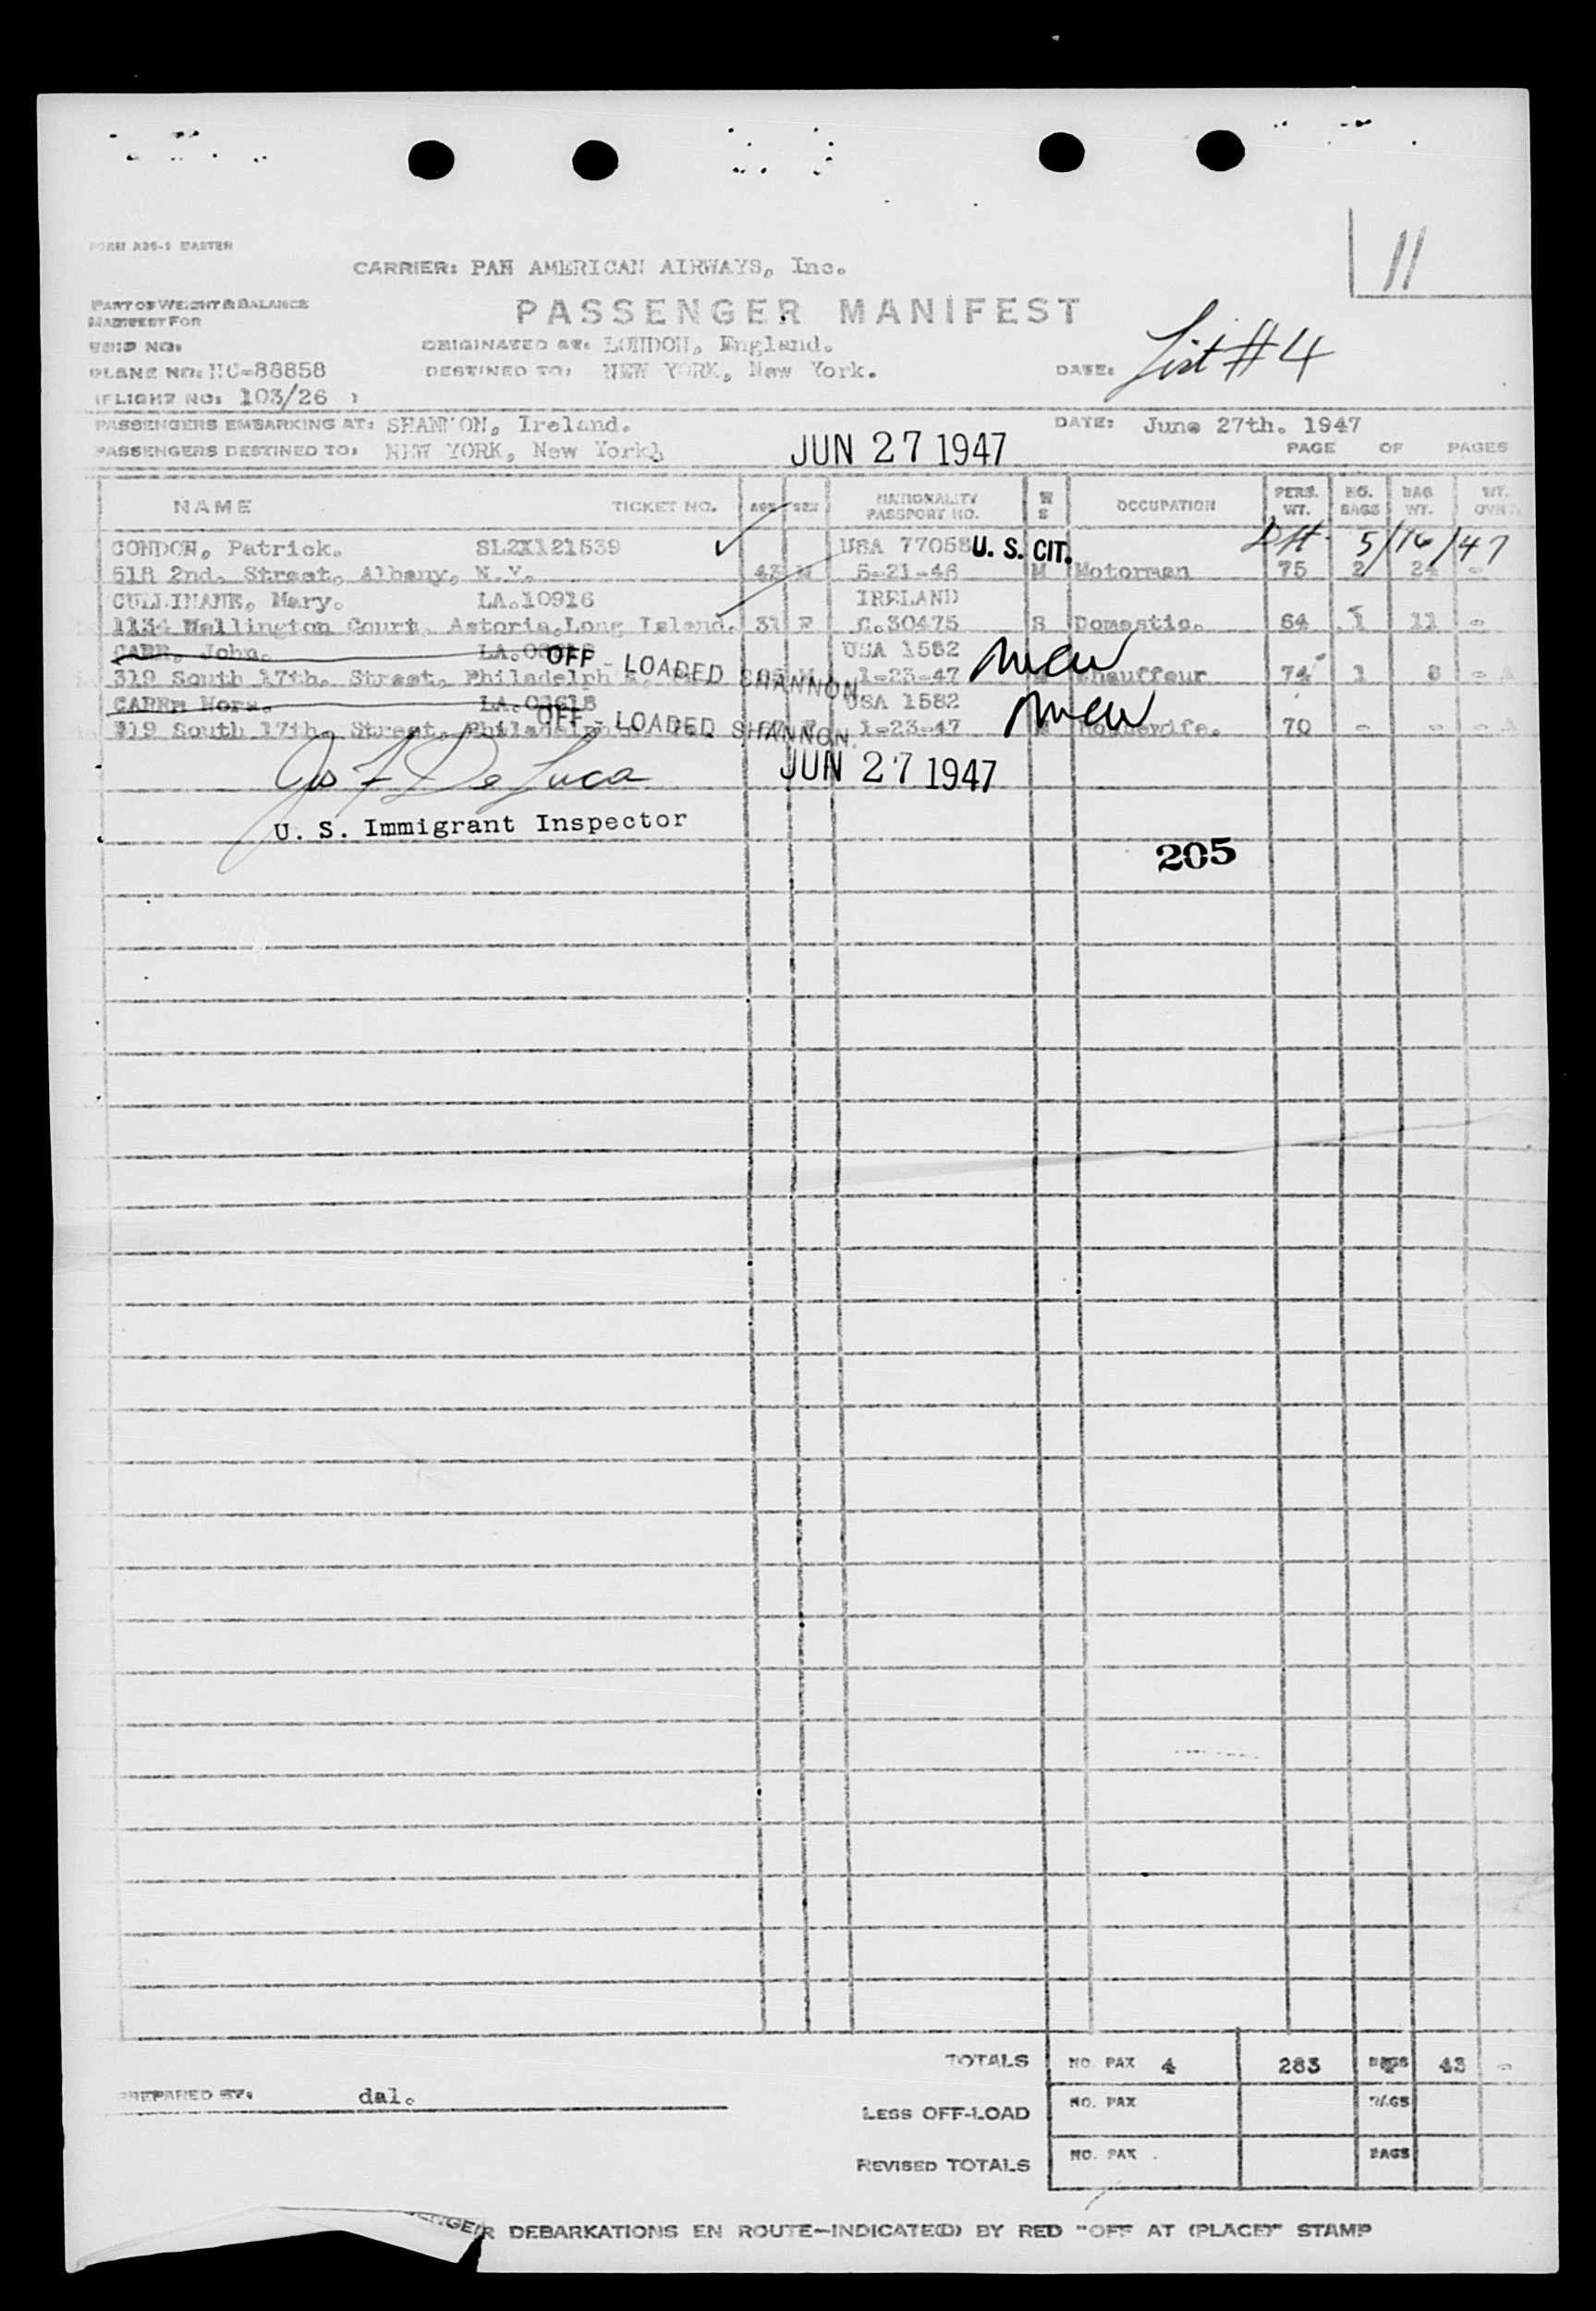 FORM A26-1 MASTER
11
CARRIER: PAN AMERICAN AIRWAYS, Inc.
PART OF WEIGHT & BALANCE
MANIFEST FOR
PASSENGER MANIFEST
List #4
TRIP NO:
ORIGINATED AT: LONDON, England.
PLANE NO: NC-88858
DESTINED TO: NEW YORK, New York.
DATE:
(FLIGHT NO: 103/26 )
PASSENGERS EMBARKING AT: SHANNON, Ireland.
DATE: June 27th. 1947
PASSENGERS DESTINED TO: NEW YORK, New York
JUN 27 1947
PAGE OF PAGES
NAME TICKET NO. AGE SEX NATIONALITY PASSPORT NO. M S OCCUPATION PERS. WT. NO. BAGS BAG WT. WT. OVR
CONDON, Patrick. SL2X121539 USA 77058 U. S. CIT. 5/16/47
518 2nd. Street, Albany, N.Y. 43 M 5-21-46 M Motorman 75 2 24 -
CULLINANE, Mary. LA.10916 IRELAND
1134 Wellington Court, Astoria, Long Island. 31 F C.30475 S Domestic. 64 1 11 -
CARR, John. USA 1582
OFF - LOADED SHANNON
319 South 17th. Street, Philadelph M 1-23-47 Chauffeur 74 1 8 - A
CARR, Nora. LA.03618 USA 1582
OFF - LOADED SHANNON.
319 South 17th. Street, Philadelph 1-23-47 Housewife. 70 - - - A
Jos F De Luca
JUN 27 1947
U. S. Immigrant Inspector
205
TOTALS NO. PAX 4 283 BAGS 43 -
PREPARED BY: dal.
LESS OFF-LOAD NO. PAX BAGS
REVISED TOTALS NO. PAX BAGS
DEBARKATIONS EN ROUTE—INDICATE(D) BY RED "OFF AT (PLACE)" STAMP